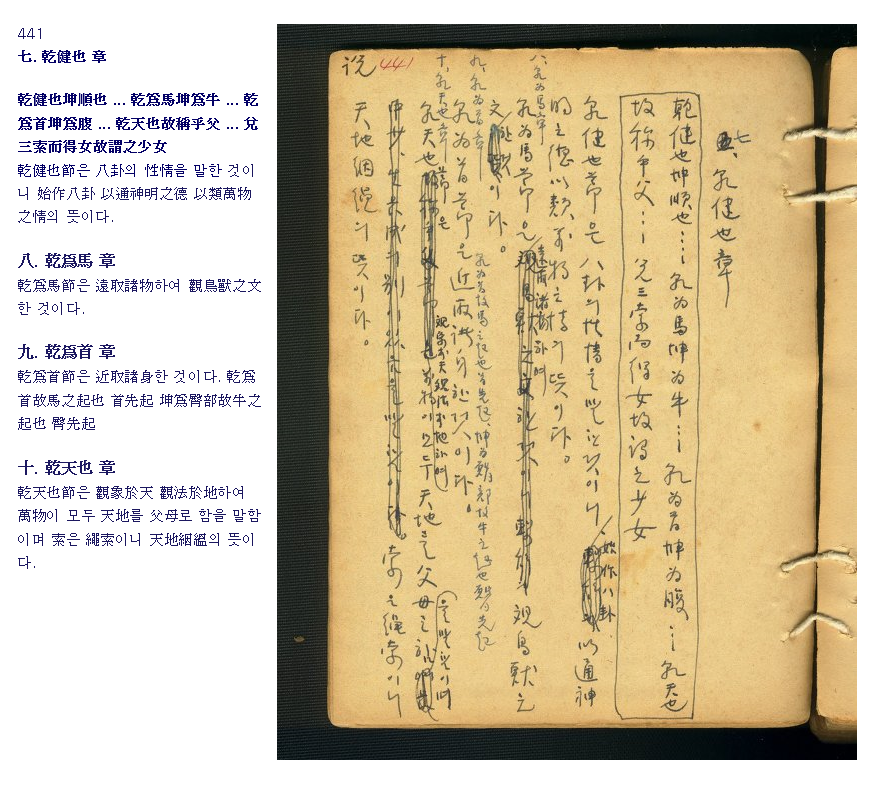 441
七. 乾健也 章
乾健也坤順也 ... 乾爲馬坤爲牛 ... 乾
爲首坤爲腹 ... 乾天也故稱乎父 ... 兌
三索而得女故謂之少女
乾健也節은 八卦의 性情을 말한 것이
니 始作八卦 以通神明之德 以類萬物
之情의 뜻이다.
八. 乾爲馬 章
乾爲馬節은 遠取諸物하여 觀鳥獸之文
한 것이다.
九. 乾爲首 章
乾爲首節은 近取諸身한 것이다. 乾爲
首故馬之起也 首先起 坤爲臀部故牛之
起也 臀先起
十. 乾天也 章
乾天也節은 觀象於天 觀法於地하여
萬物이 모두 天地를 父母로 함을 말함
이며 索은 繩索이니 天地絪縕의 뜻이
다.
说 441
七、乾健也章
乾健也坤順也…乾为馬坤为牛…乾为首坤为腹…乾天也
故称乎父…兌三索而得女故謂之少女
乾健也節은 八卦의 性情을 말한 것이니 始作八卦 以通神
明之德 以類万物之情의 뜻이다。
八、乾为馬章
乾为馬節은 遠取諸物하여 观鳥獸之
文한 것이다。
九、乾为首章
乾为首節은 近取諸身한 것이다。
乾为首故馬之起也首先起、坤为臀部故牛之起也臀先起
十、乾天也章
乾天也節은 观象於天 观法於地하여 万物이 모두 天地를 父母로
索은 繩索이니
天地絪縕의 뜻이다。